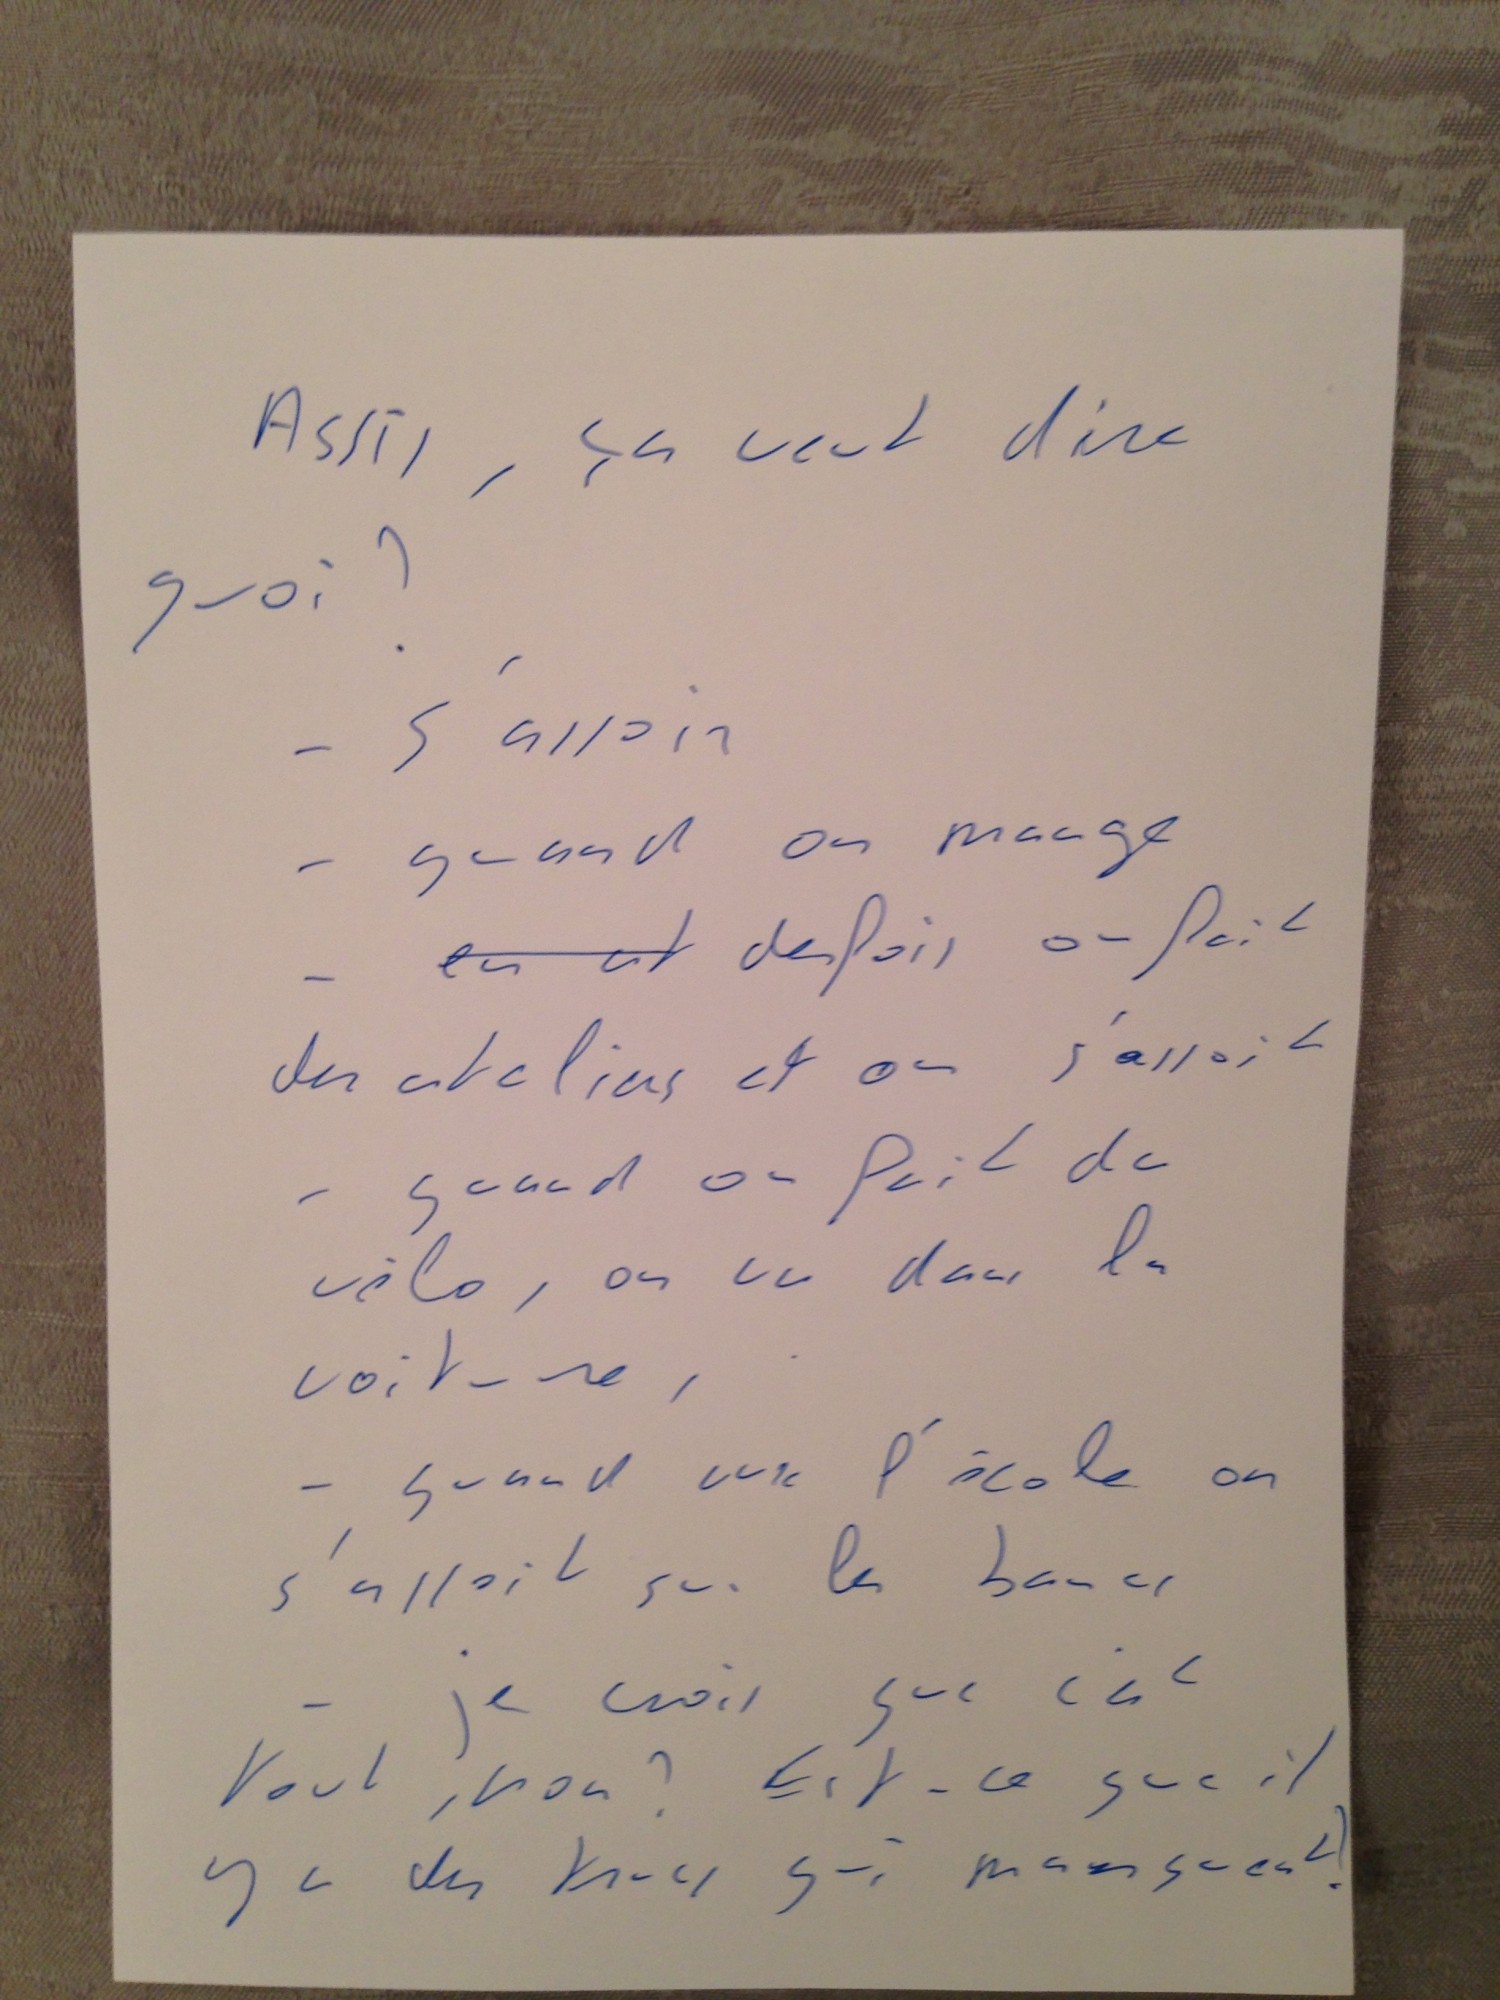 Assis, ça veut dire
quoi?
- s'assoir
- quand on mange
- des fois on fait
des ateliers et on s'assoit
- quand on fait du
vélo, on va dans la
voiture,
- quand l'école on
s'assoit sur les bancs
- je crois que c'est
tout, non? Est-ce que il
y a des trucs qui manquent?